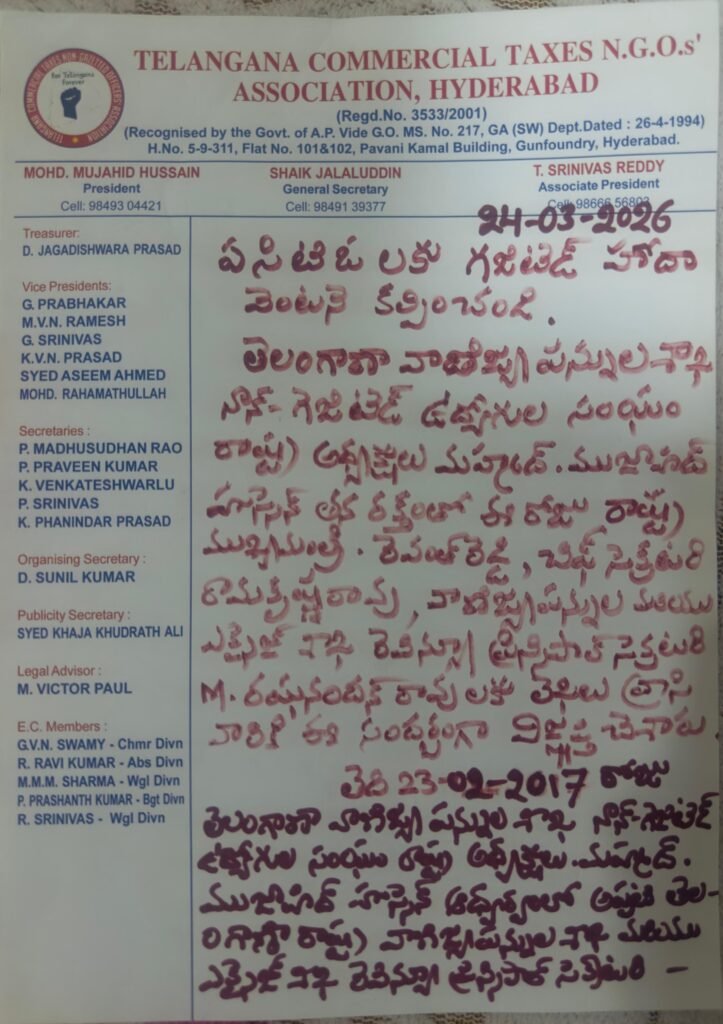 TELANGANA COMMERCIAL TAXES NON GAZETTED OFFICERS' ASSOCIATION
For Telangana
Forever
TELANGANA COMMERCIAL TAXES N.G.O.s'
ASSOCIATION, HYDERABAD
(Regd.No. 3533/2001)
(Recognised by the Govt. of A.P. Vide G.O. MS. No. 217, GA (SW) Dept.Dated : 26-4-1994)
H.No. 5-9-311, Flat No. 101&102, Pavani Kamal Building, Gunfoundry, Hyderabad.
MOHD. MUJAHID HUSSAIN
President
Cell: 98493 04421
SHAIK JALALUDDIN
General Secretary
Cell: 98491 39377
T. SRINIVAS REDDY
Associate President
Cell: 98666
Treasurer:
D. JAGADISHWARA PRASAD
Vice Presidents:
G. PRABHAKAR
M.V.N. RAMESH
G. SRINIVAS
K.V.N. PRASAD
SYED ASEEM AHMED
MOHD. RAHAMATHULLAH
Secretaries :
P. MADHUSUDHAN RAO
P. PRAVEEN KUMAR
K. VENKATESHWARLU
P. SRINIVAS
K. PHANINDAR PRASAD
Organising Secretary :
D. SUNIL KUMAR
Publicity Secretary :
SYED KHAJA KHUDRATH ALI
Legal Advisor :
M. VICTOR PAUL
E.C. Members :
G.V.N. SWAMY - Chmr Divn
R. RAVI KUMAR - Abs Divn
M.M.M. SHARMA - Wgl Divn
P. PRASHANTH KUMAR - Bgt Divn
R. SRINIVAS - Wgl Divn
24-03-2026
ఏ సి టి ఓ లకు గజిటెడ్ హోదా
వెంటనే కల్పించండి.
తెలంగాణా వాణిజ్య పన్నుల శాఖ
నాన్-గెజిటెడ్ ఉద్యోగుల సంఘం
రాష్ట్ర అధ్యక్షులు మహ్మద్. ముజాహిద్
హుస్సేన్ తన రక్తంలో ఈ రోజు రాష్ట్ర
ముఖ్యమంత్రి. రేవంత్ రెడ్డి, చీఫ్ సెక్రటరి
రామకృష్ణారావు, వాణిజ్యపన్నుల మరియు
ఎక్సైజ్ శాఖ రెవిన్యూ ప్రిన్సిపాల్ సెక్రటరి
M. రఘునందన్ రావు లకు లేఖలు వ్రాసి
వారికి ఈ సందర్భంగా విజ్ఞప్తి చేశారు.
తేది 23-02-2017 రోజు
తెలంగాణా వాణిజ్య పన్నుల శాఖ నాన్-గెజిటెడ్
ఉద్యోగుల సంఘం రాష్ట్ర అధ్యక్షులు. మహ్మద్.
ముజాహిద్ హుస్సేన్ ఆధ్వర్యంలో అప్పటి తెల-
ంగాణా రాష్ట్ర వాణిజ్యపన్నుల శాఖ మరియు
ఎక్సైజ్ శాఖ రెవిన్యూ ప్రిన్సిపాల్ సెక్రటరి -